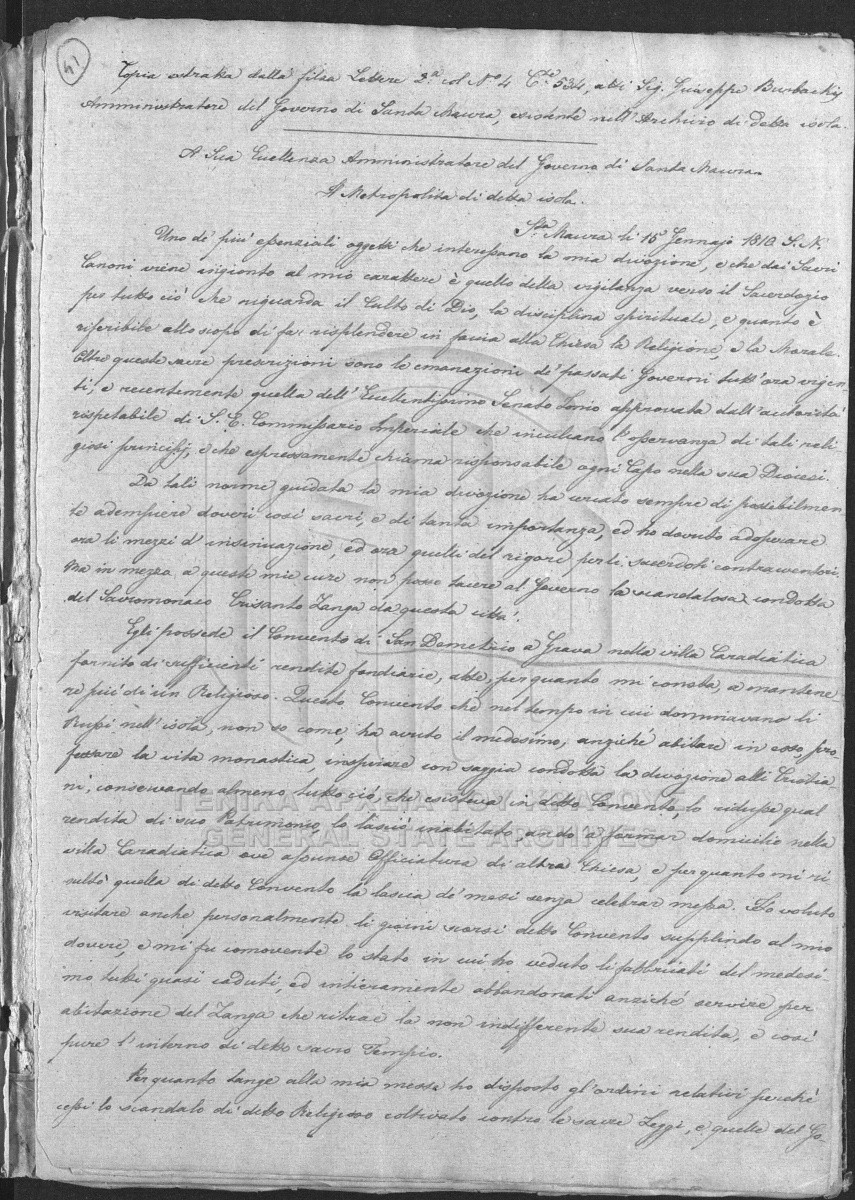 41
Copia estratta dalla filza Lettere 2.a col No 4 Cte 534, atti Sig. Giuseppe Burbachi
Amministratore del Governo di Santa Maura, esistente nell'Archivio di detta isola.
A Sua Eccellenza Amministratore del Governo di Santa Maura.
Il Metropolita di detta isola.
Sta Maura li 15 Gennajo 1810 S. N.
Uno de' più essenziali oggetti che interessano la mia divozione, e che dai Sacri
Canoni viene ingionto al mio carattere è quello della vigilanza verso il Sacerdozio
per tutto ciò che riguarda il Culto di Dio, la disciplina spirituale, e quanto è
riferibile allo scopo di far risplendere in faccia alla Chiesa la Religione e la Morale.
Oltre queste sacre prescrizioni sono le emanazioni de' passati Governi tutt'ora vigen-
ti, e recentemente quella dell'Eccellentissimo Senato Jonio approvata dall'autorità
rispetabile di S. E. Commissario Imperiale che inculcano l'osservanza di tali reli
giosi principj, e che espressamente chiama responsabile ogni Capo nella sua Diocesi.
Da tali norme guidata la mia divozione ha cercato sempre di possibilmen-
te adempiere doveri così sacri, e di tanta importanza, ed ho dovuto adoperare
ora li mezzi d'insinuazione, ed ora quelli del rigore per li sacerdoti contraventori.
Ma in mezzo a queste mie cure non posso tacere al Governo la scandalosa condotta
del Sacromonaco Crisanto Zanga da questa città.
Egli possede il Convento di San Demetrio a Grava nella villa Caradiatica
fornito di sufficienti rendite fondiarie, atte, per quanto mi consta, a mantene-
re più di un Religioso. Questo Convento che nel tempo in cui dominavano li
Russi nell'isola, non so come, ha avuto il medesimo, anziché abitare in esso, pro-
fessare la vita monastica, inspirare con saggia condotta la divozione alli Cristia-
ni, conservando almeno tutto ciò, che esisteva in detto Convento, lo ridusse qual
rendita di suo Patrimonio, lo lasciò inabitato andò a formar domicilio nella
villa Caradiatica ove assunse Officiatura di altra Chiesa, e per quanto mi ri
sultò quella di detto Convento la lascia de' mesi senza celebrar messa. Ho voluto
visitare anche personalmente li giorni scorsi detto Convento supplindo al mio
dovere, e mi fu comovente lo stato in cui ho veduto li fabbricati del medesi-
mo tutti quasi caduti, ed intieramente abbandonati anziché servire per
abitazione del Zanga che ritrae la non indifferente sua rendita, e così
pure l'interno di detto sacro Tempio.
Per quanto tange alla mia messe ho disposto gl'ordini relativi perché
cessi lo scandalo di detto Religioso coltivato contro le sacre Leggi, e quelle del Go-
ΓΕΝΙΚΑ ΑΡΧΕΙΑ ΤΟΥ ΚΡΑΤΟΥΣ
GENERAL STATE ARCHIVES